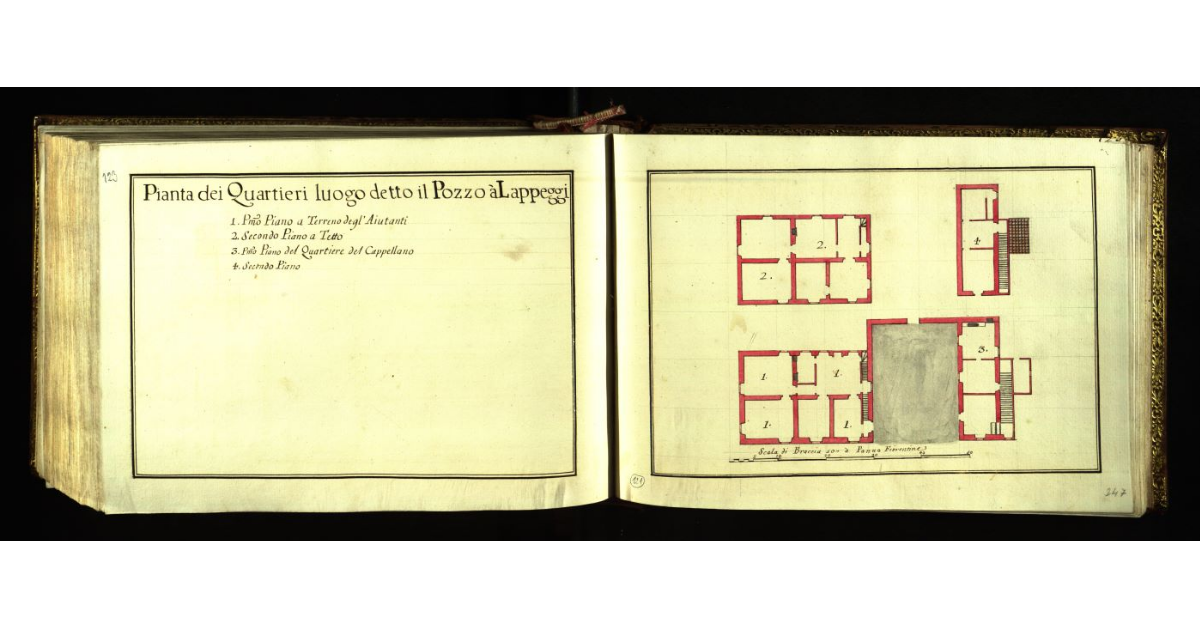 123
Pianta dei Quartieri luogo detto il Pozzo à Lappeggi
1. Pmo Piano a Terreno degl' Aiutanti
2. Secondo Piano a Tetto
3. Pmo Piano del Quartiere del Cappellano
4. Secondo Piano
2.
4.
2.
3.
1.
1.
1.
1.
Scala di Braccia a Panna Fiorentine
121
347